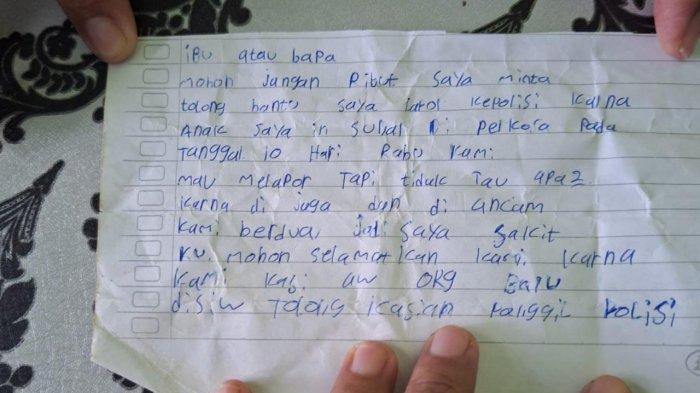 ibu atau bapa
mohon jangan Ribut saya minta
tolong bantu saya lapol kepolisi karna
Anak saya ini sudal di perkosa Pada
Tanggal 10 Hari Rabu Kami
mau melapor Tapi tidak Tau apa2
karna di juga dan di ancam
kami berdua, jadi saya sakit
mohon selamat ikan kami karna
Kami ORG Baru
disiw Tolong kasian Panggil Polisi